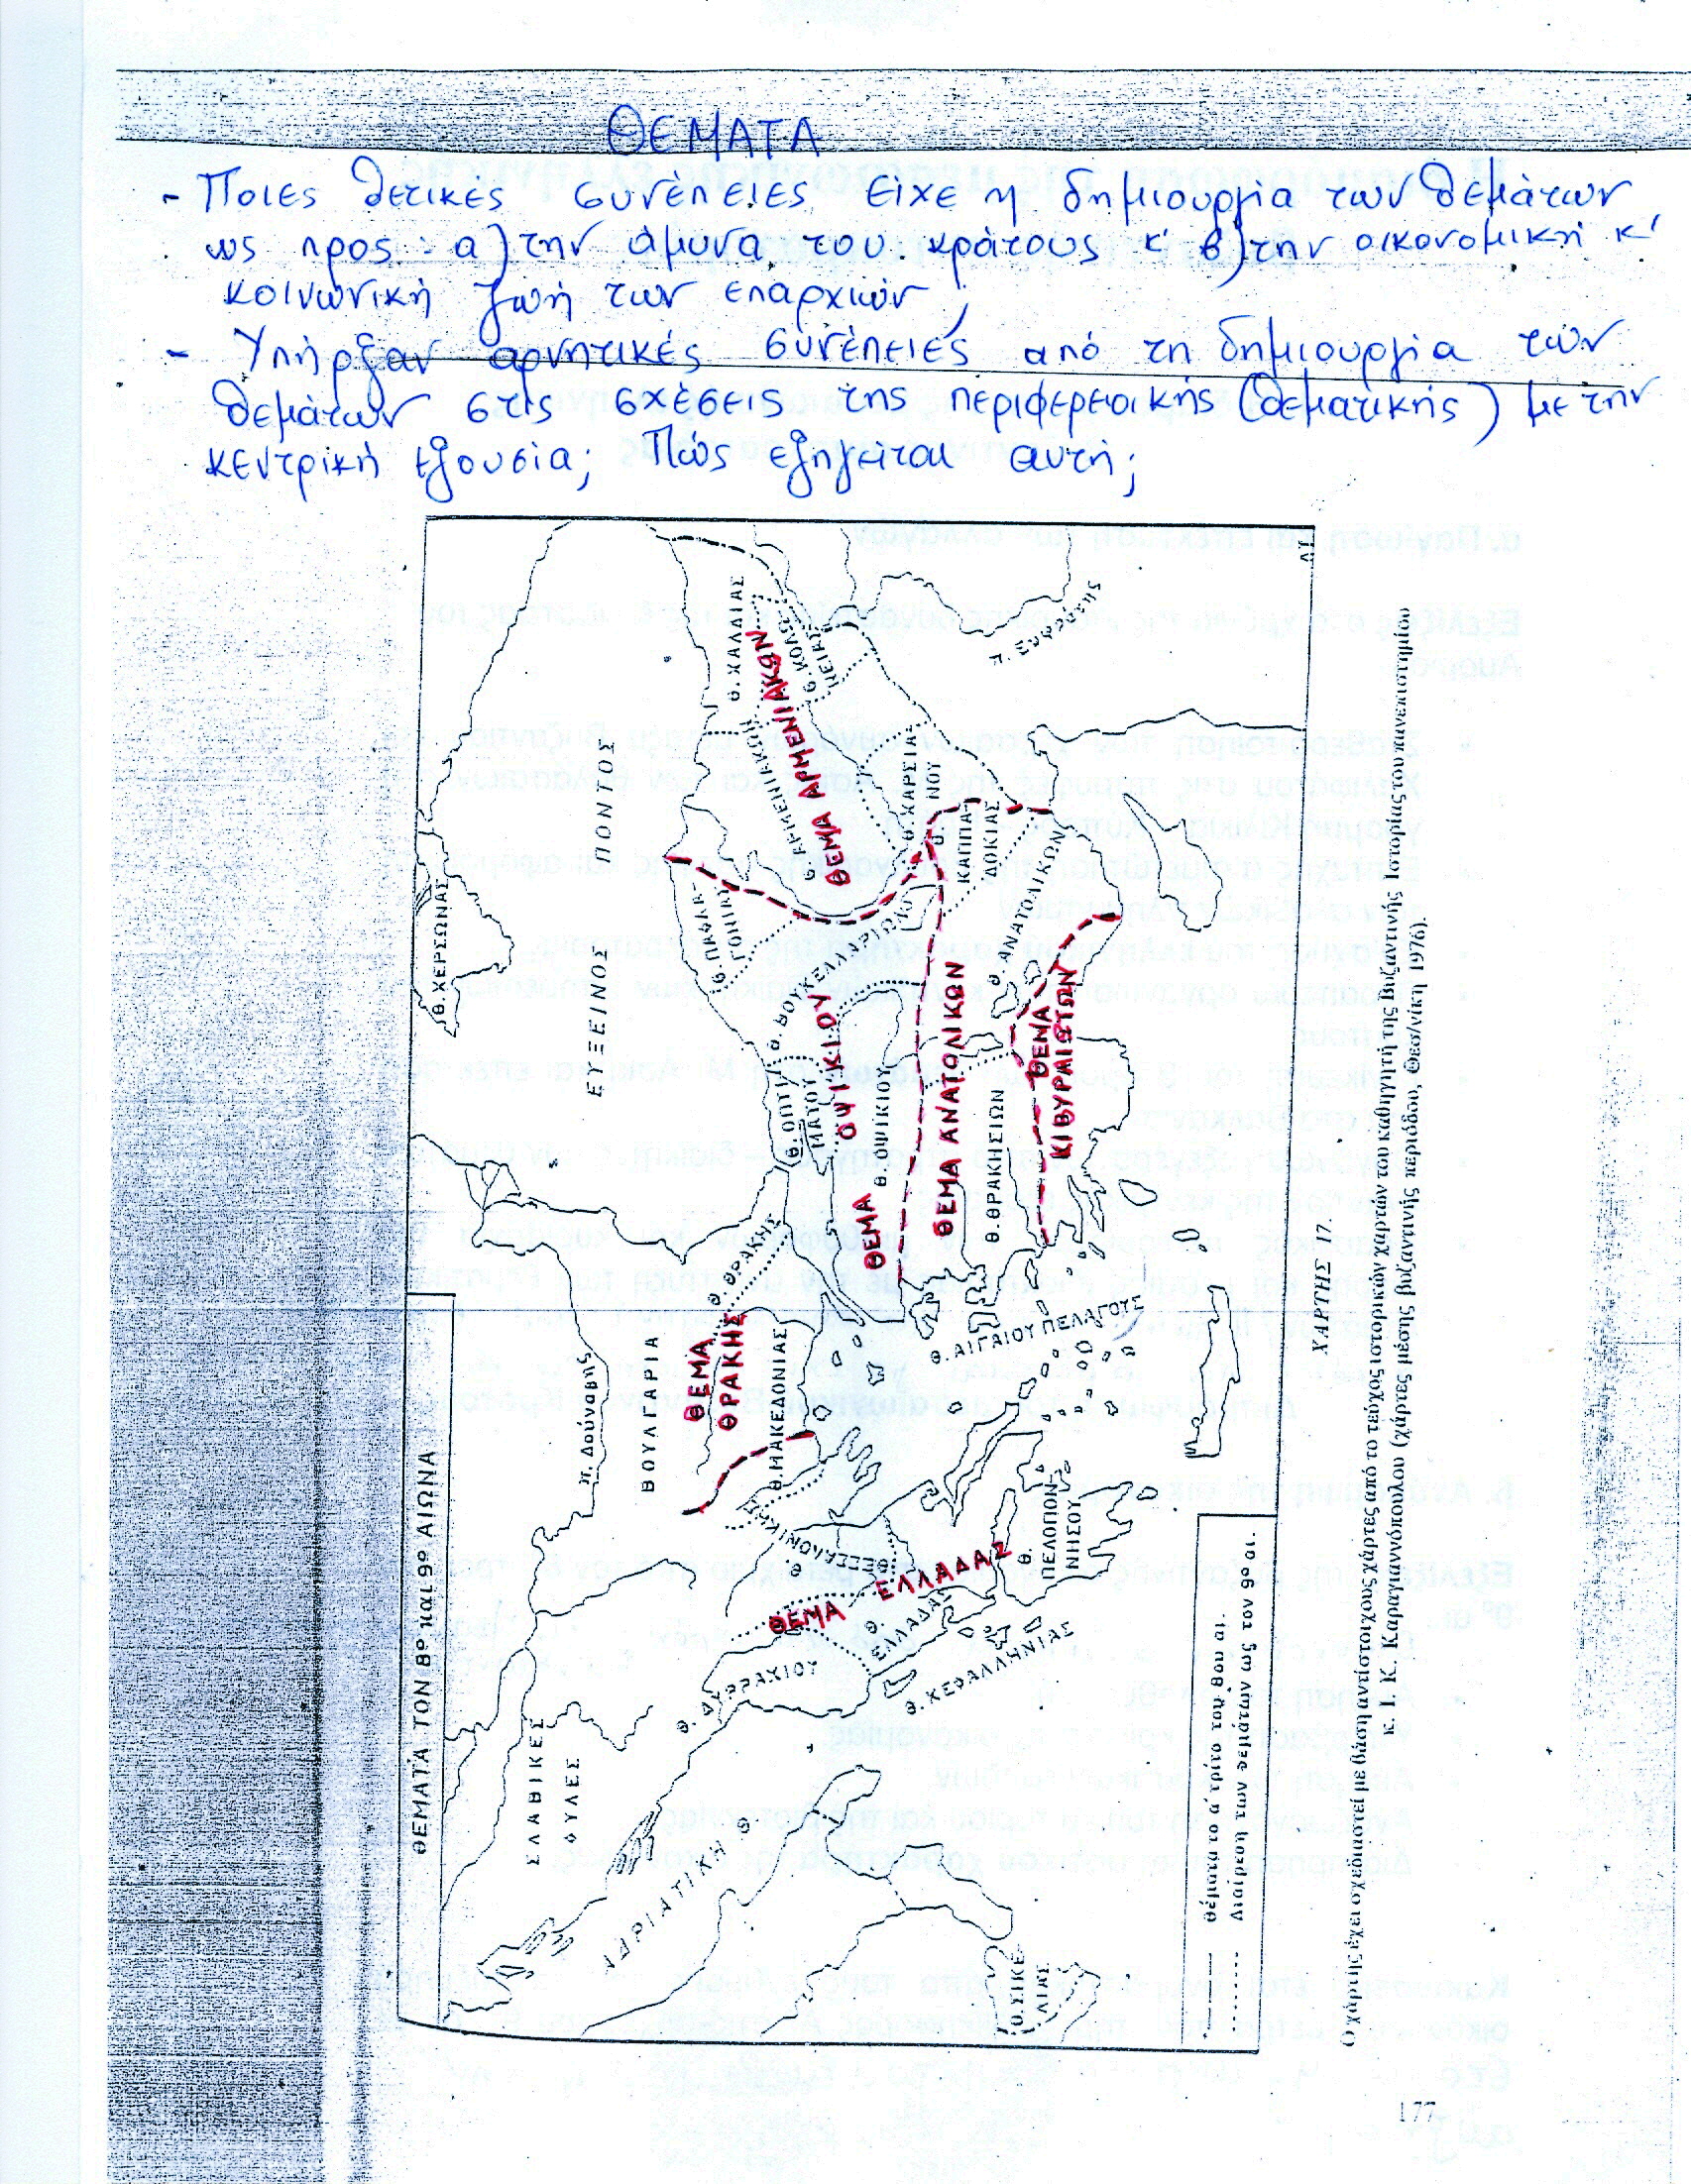 ΘΕΜΑΤΑ
- Ποιες θετικές συνέπειες είχε η δημιουργία των θεμάτων
ως προς : α) την άμυνα του κράτους κ' β) την οικονομική κ'
κοινωνική ζωή των επαρχιών ;
- Υπήρξαν αρνητικές συνέπειες από τη δημιουργία των
θεμάτων στις σχέσεις της περιφερειακής (θεματικής) με την
κεντρική εξουσία; Πώς εξηγείται αυτή;
ΘΕΜΑΤΑ ΤΟΝ 8ο και 9ο ΑΙΩΝΑ
Θ. ΧΕΡΣΩΝΑΣ
ΕΥΞΕΙΝΟΣ ΠΟΝΤΟΣ
π. Δούναβης
ΒΟΥΛΓΑΡΙΑ
ΣΛΑΒΙΚΕΣ
ΦΥΛΕΣ
ΑΔΡΙΑΤΙΚΗ Θ.
Θ. ΣΙΚΕ-
ΛΙΑΣ
Θ. ΔΥΡΡΑΧΙΟΥ
Θ. ΚΕΦΑΛΛΗΝΙΑΣ
Θ. ΕΛΛΑΔΑΣ
ΘΕΜΑ ΕΛΛΑΔΑΣ
Θ. ΘΕΣΣΑΛΟΝΙΚΗΣ
Θ.
ΠΕΛΟΠΟΝ-
ΝΗΣΟΥ
Θ. ΜΑΚΕΔΟΝΙΑΣ
ΘΕΜΑ
ΘΡΑΚΗΣ
Θ. ΘΡΑΚΗΣ
Θ. ΑΙΓΑΙΟΥ ΠΕΛΑΓΟΥΣ
Θ. ΟΠΤΙ-
ΜΑΤΟΥ
Θ. ΟΨΙΚΙΟΥ
ΘΕΜΑ ΟΨΙΚΙΟΥ
Θ. ΒΟΥΚΕΛΛΑΡΙΩΝ
Θ. ΠΑΦΛΑ-
ΓΟΝΙΑΣ
Θ. ΑΡΜΕΝΙΑΚΩΝ
ΘΕΜΑ ΑΡΜΕΝΙΑΚΩΝ
Θ. ΧΑΛΔΙΑΣ
Θ. ΚΟΛΩ-
ΝΕΙΑΣ
Θ. ΧΑΡΣΙΑ-
ΝΟΥ
Θ.
ΚΑΠΠΑ-
ΔΟΚΙΑΣ
Θ. ΑΝΑΤΟΛΙΚΩΝ
ΘΕΜΑ ΑΝΑΤΟΛΙΚΩΝ
Θ. ΘΡΑΚΗΣΙΩΝ
ΘΕΜΑ
ΚΙΒΥΡΑΙΩΤΩΝ
π. Ευφράτης
θέματα το α' μισό του 8ου αι.
Διαίρεση στις αρχές του 9ου αι.
ΧΑΡΤΗΣ 17.
Ο χάρτης έχει σχεδιαστεί με βάση αντίστοιχους χάρτες από το τεύχος ιστορικών χαρτών του καθηγητή της Βυζαντινής Ιστορίας του πανεπιστημίου
κ. Ι. Κ. Καραγιαννόπουλου (χάρτες μέσης βυζαντινής περιόδου, Θεσ/νίκη 1976).
177